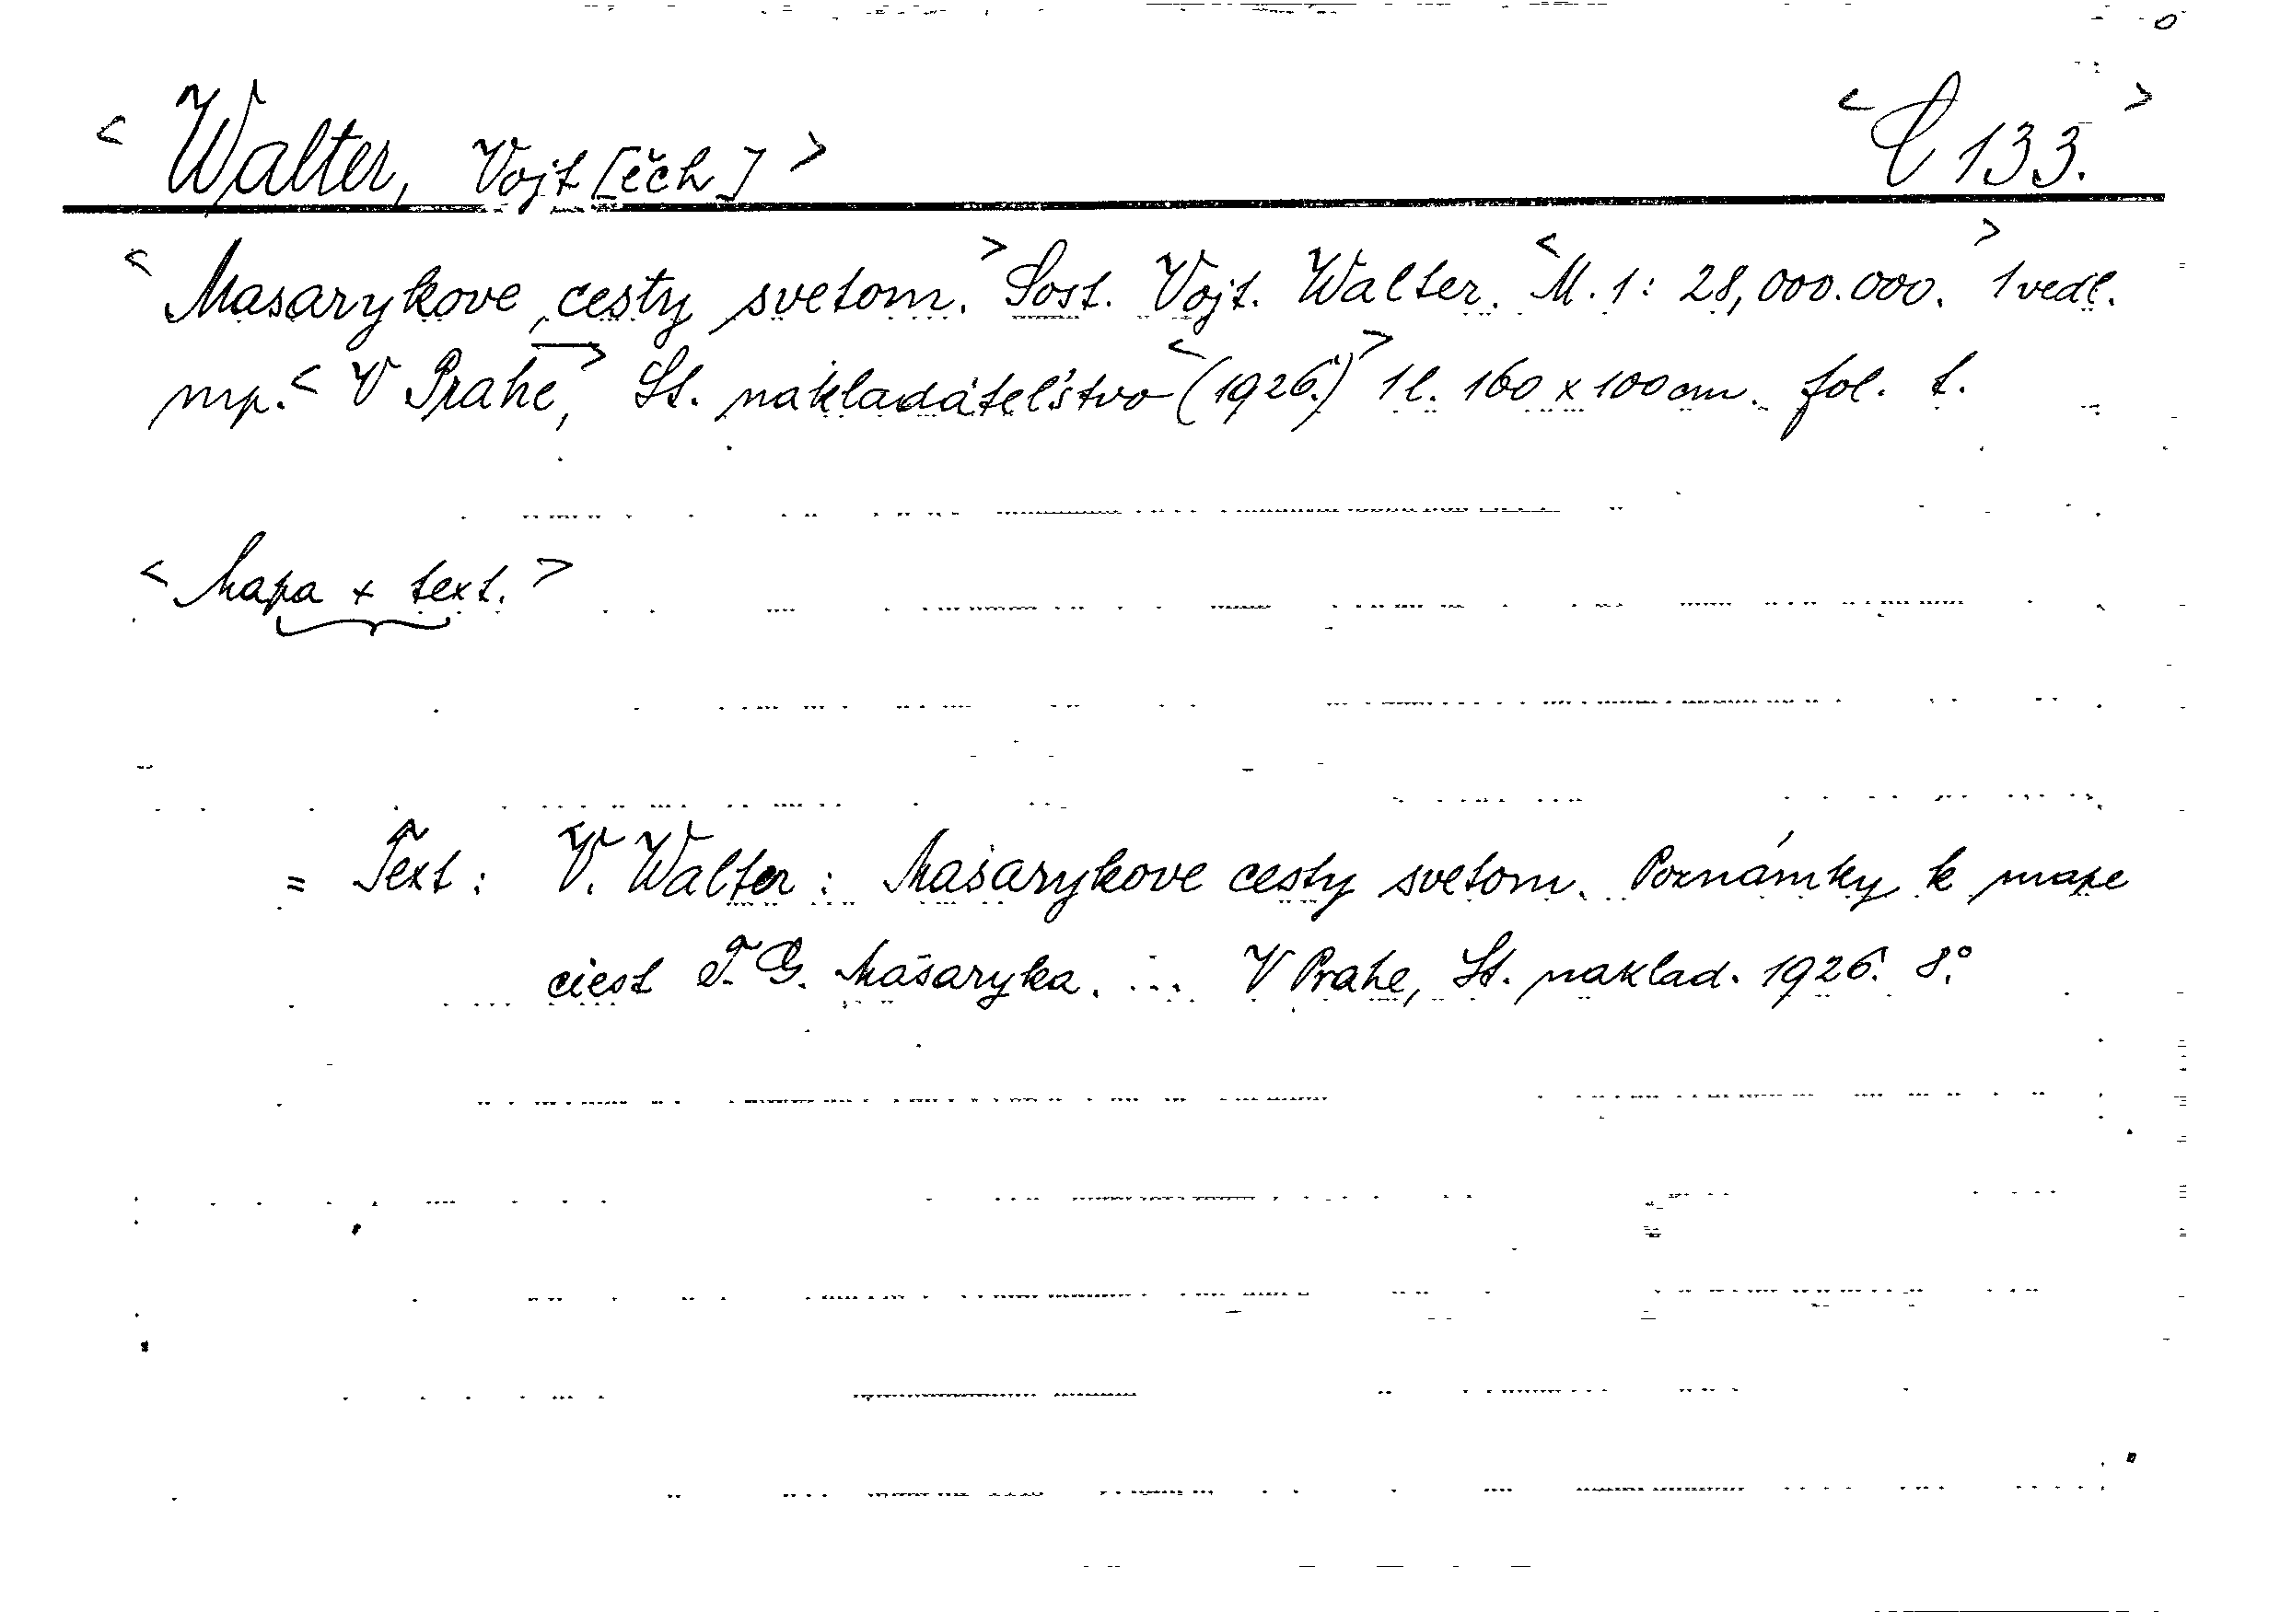 < Walter, Vojt[ěch] > < C 133. >
< Masarykove cesty svetom. > Sost. Vojt. Walter. < M. 1 : 28,000.000. > 1 vedl.
mp. < V Prahe, > St. nakladáteľstvo < (1926.) > 1 l. 160 x 100 cm. fol. t.
< Mapa + text. >
= Text : V. Walter : Masarykove cesty svetom. Poznámky k mape
ciest T. G. Masaryka. ... V Prahe, St. naklad. 1926. 8.°